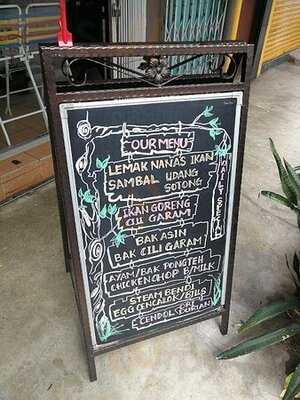 OUR MENU
LEMAK NANAS IKAN
SAMBAL UDANG
SOTONG
IKAN GORENG
CILI GARAM
BAK ASIN
BAK CILI GARAM
AYAM/BAK PONGTEH
CHICKEN CHOP B/MILK
STEAM BENDI
EGG CENCALOK/BILIS
CENDOL DURIAN
DAILY SPECIAL